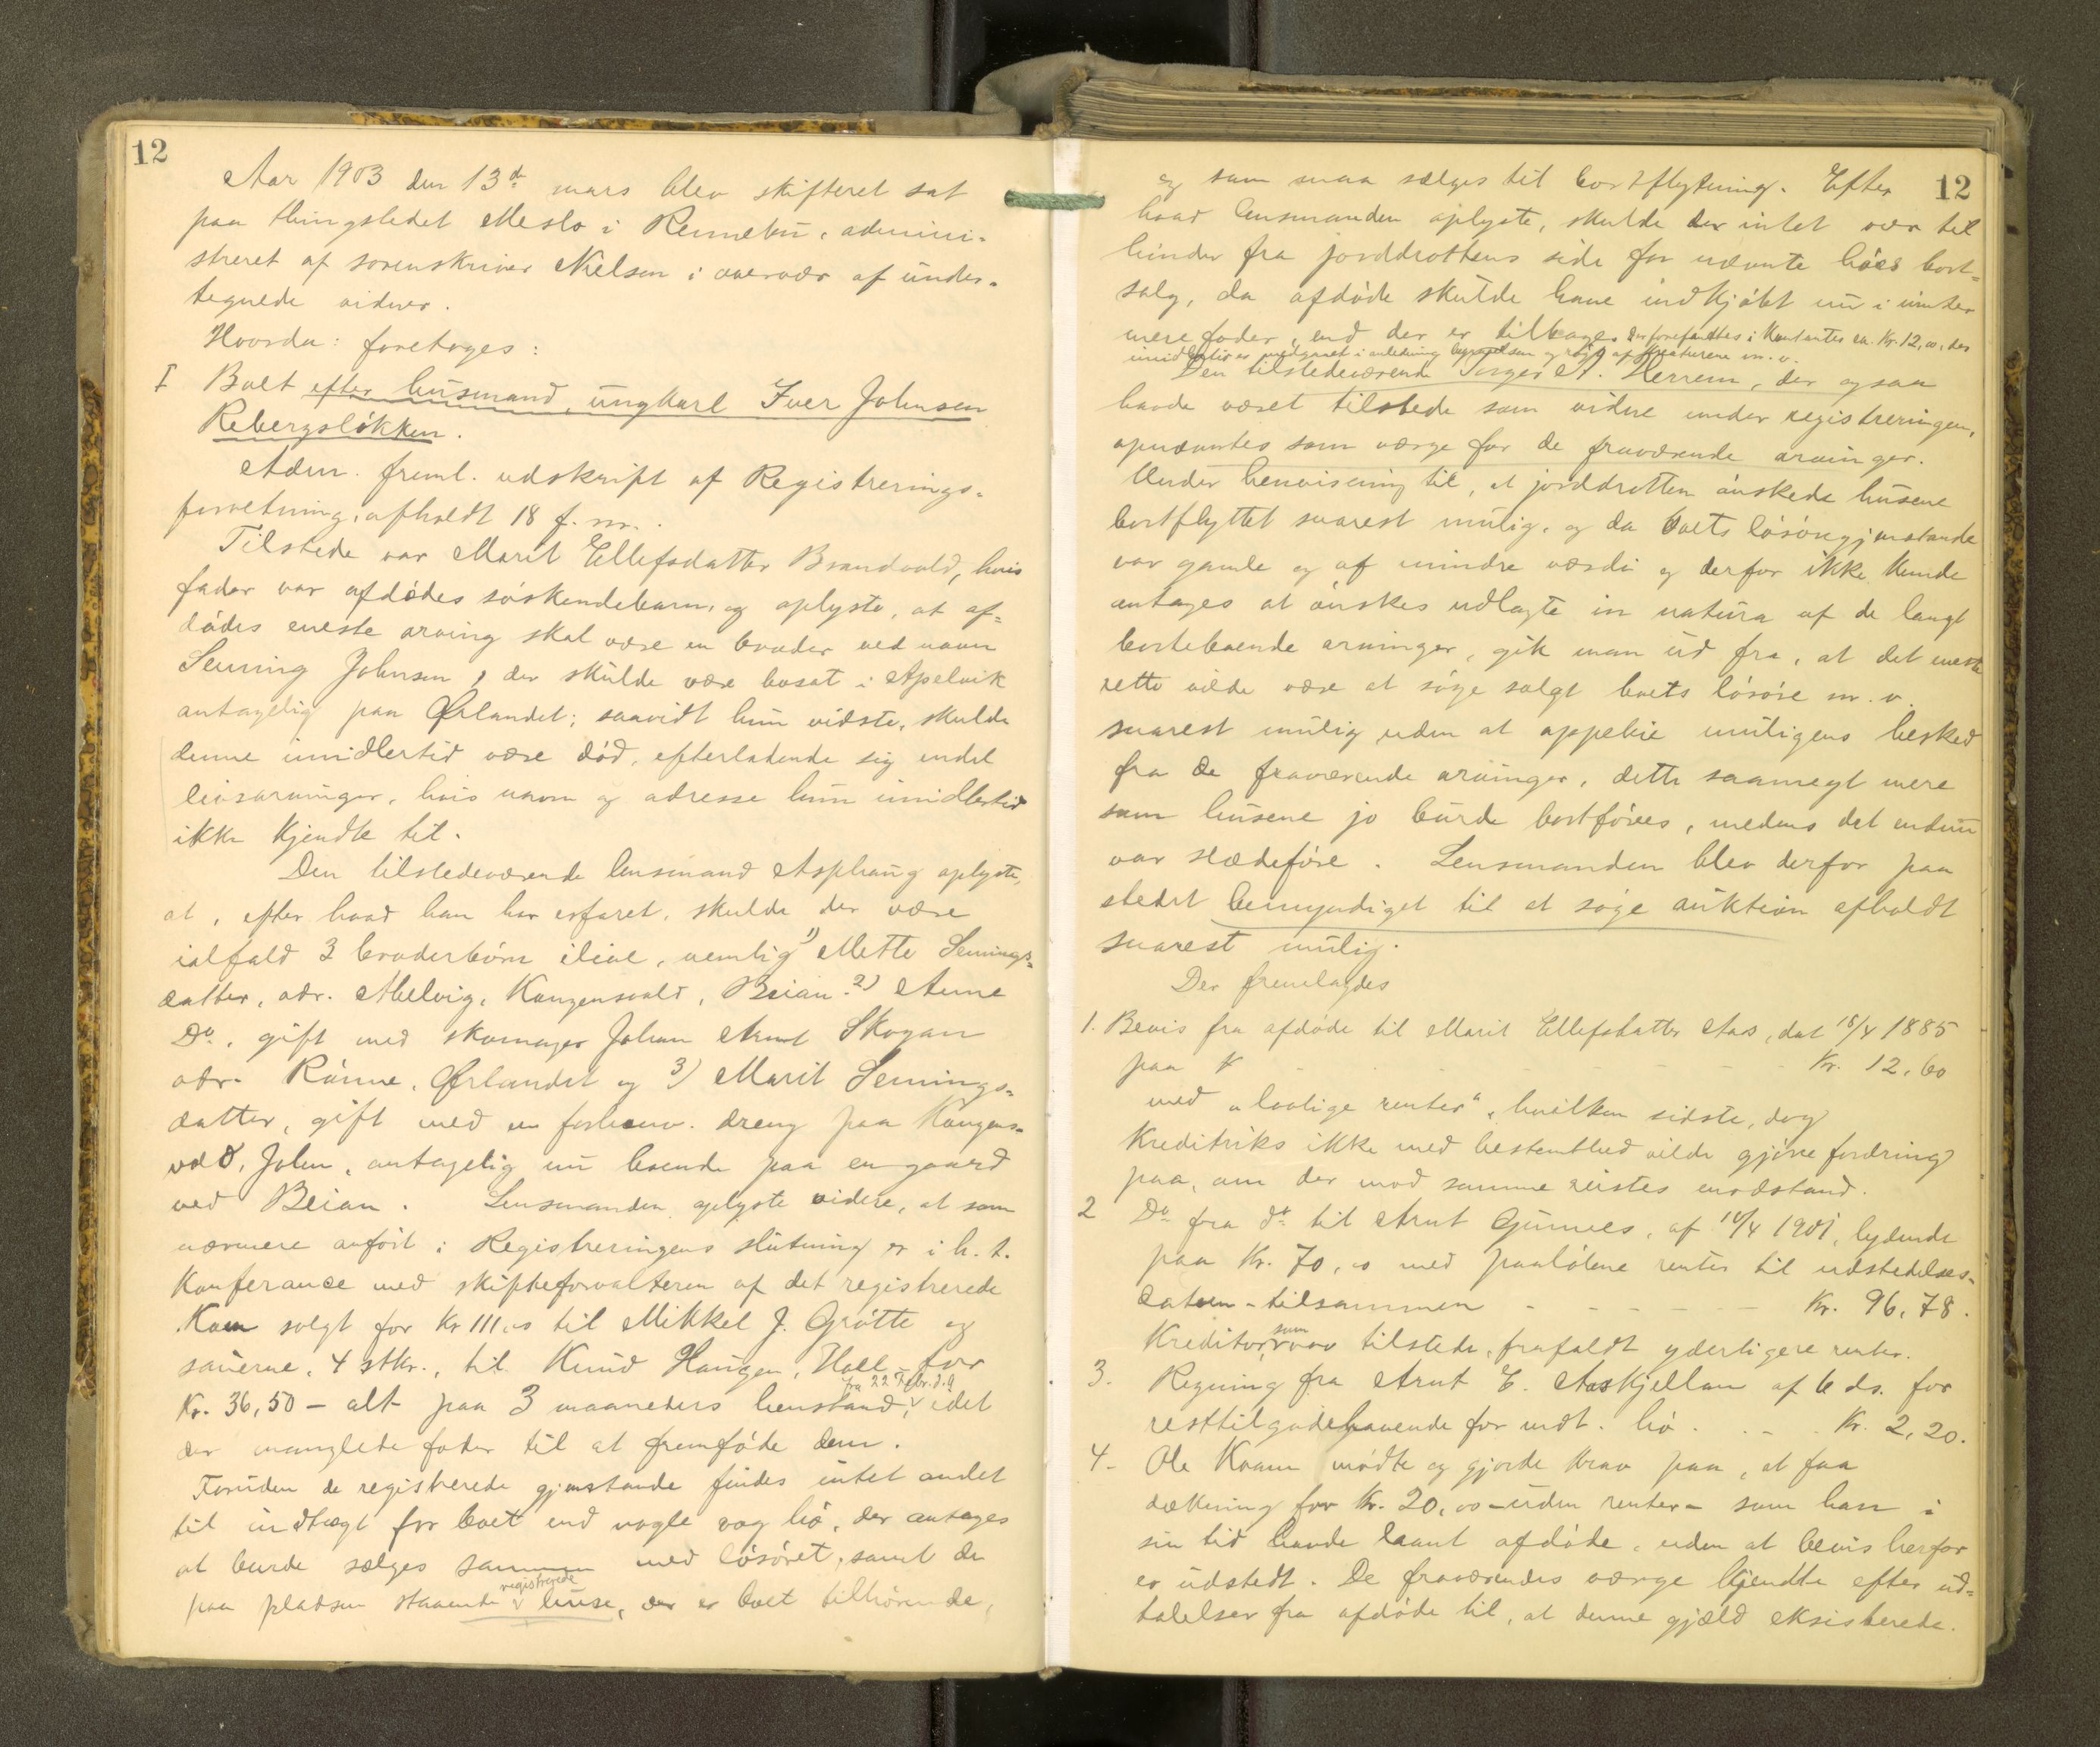 12
Aar 1903 den 13de mars blev skifteret sat
paa thingstedet Meslo i Rennebu, admini-
streret af sorenskriver Nielsen i overvær af under-
tegnede vidner.
Hvorda: foretoges:
I Boet efter husmand, ungkarl Iver Johnsen
Rebergsløkken.
Adm. freml. udskrift af Registrerings-
forretning, afholdt 18 f. m.
Tilstede var Marit Ellefsdatter Brandvold, hvis
fader var afdødes søskendebarn, og oplyste, at af-
dødes eneste arving skal være en broder ved navn
Seming Johnsen, der skulde være bosat i Apelvik
antagelig paa Ørlandet; saavidt hun vidste, skulde
denne imidlertid være død, efterladende sig endel
livsarvinger, hvis navn og adresse hun imidlertid
ikke kjendte til.
Den tilstedeværende lensmand Asphaug oplyste,
at, efter hvad han har erfaret, skulde der være
ialfald 3 broderbørn ilive, nemlig 1) Mette Semings-
datter, adr. Melvig, Kongensvold, Beian. 2) Anne
Do, gift med skomager Johan Arnt Skogan
adr. Rønne, Ørlandet og 3) Marit Semings-
datter, gift med en forhenv. dreng paa Kongens-
vold, John, antagelig nu boende paa en gaard
ved Beian. Lensmanden oplyste videre, at som
nærmere anført i Registreringens slutning er i h. t.
Konferance med skifteforvalteren af det registrerede
Koen solgt for Kr 111,00 til Mikkel J. Grøtte og
sauerne, 4 stkr., til Knud Haugen, Hoel - for
Kr. 36,50 - alt paa 3 maaneders henstand, fra 22 Febr. d.a. idet
der manglede foder til at fremføde dem.
Foruden de registrerede gjenstande findes intet andet
til indtægt for boet end nogle vog hø, der antages
at burde sælges sammen med løsøret, samt de
paa pladsen staaende registrerede huse, der er boet tilhørende,
12
og som maa sælges til bortflytning. Efter
hvad lensmanden oplyste, skulde der intet være til
hinder fra jorddrottens side for nævnte høes bort-
salg, da afdøde skulde have indkjøbt nu i vinter
mere foder, end der er tilbage. Der forefandtes i Kontanter ca. Kr. 12,00, der
imidlertid er medgaaet i anledning begravelsen og røgt af Kreaturene m. v.
Den tilstedeværende A. Herrem, der ogsaa
havde været tilstede som vidne under registreringen,
opnævntes som værge for de fraværende arvinger.
Under henvisning til, at jorddrotten ønskede husene
bortflyttet snarest mulig, og da boets løsøregjenstande
var gamle og af mindre værdi og derfor ikke kunde
antages at ønskes udlagte in natura af de langt
borteboende arvinger, gik man ud fra, at det eneste
rette vilde være at søge solgt boets løsøre m. v.
snarest mulig uden at oppebie muligens besked
fra de fraværende arvinger, dette saameget mere
som husene jo burde bortføres, medens det endnu
var slædeføre. Lensmanden blev derfor paa
stedet bemyndiget til at søge auktion afholdt
snarest mulig.
Der fremlagdes
1. Bevis fra afdøde til Marit Ellefsdatter Aas, dat 18/4 1885
paa Kr. 12,60
med "lovlige renter", hvilken sidste, dog
Kreditriks ikke med bestemthed vilde gjøre fordring
paa, om der mod samme reistes modstand.
2 Do fra do til Arnt Gunnes, af 10/4 1901, lydende
paa Kr. 70,00 med paaløbne renter til udstedelses-
datoen - tilsammen - - - - - Kr. 96,78.
Kreditor, som var tilstede, frafaldt yderligere renter.
3. Regning fra Arnt E. Aaskjellan af 6 ds. for
resttilgodehavende for mdt. hø . . - . Kr. 2,20.
4- Ole Kvam mødte og gjorde krav paa, at faa
dækning for Kr. 20,00 - uden renter - som han i
sin tid havde laant afdøde, uden at bevis herfor
er udstedt. De fraværendes værge kjendte efter ud-
talelser fra afdøde til, at denne gjæld eksisterede.